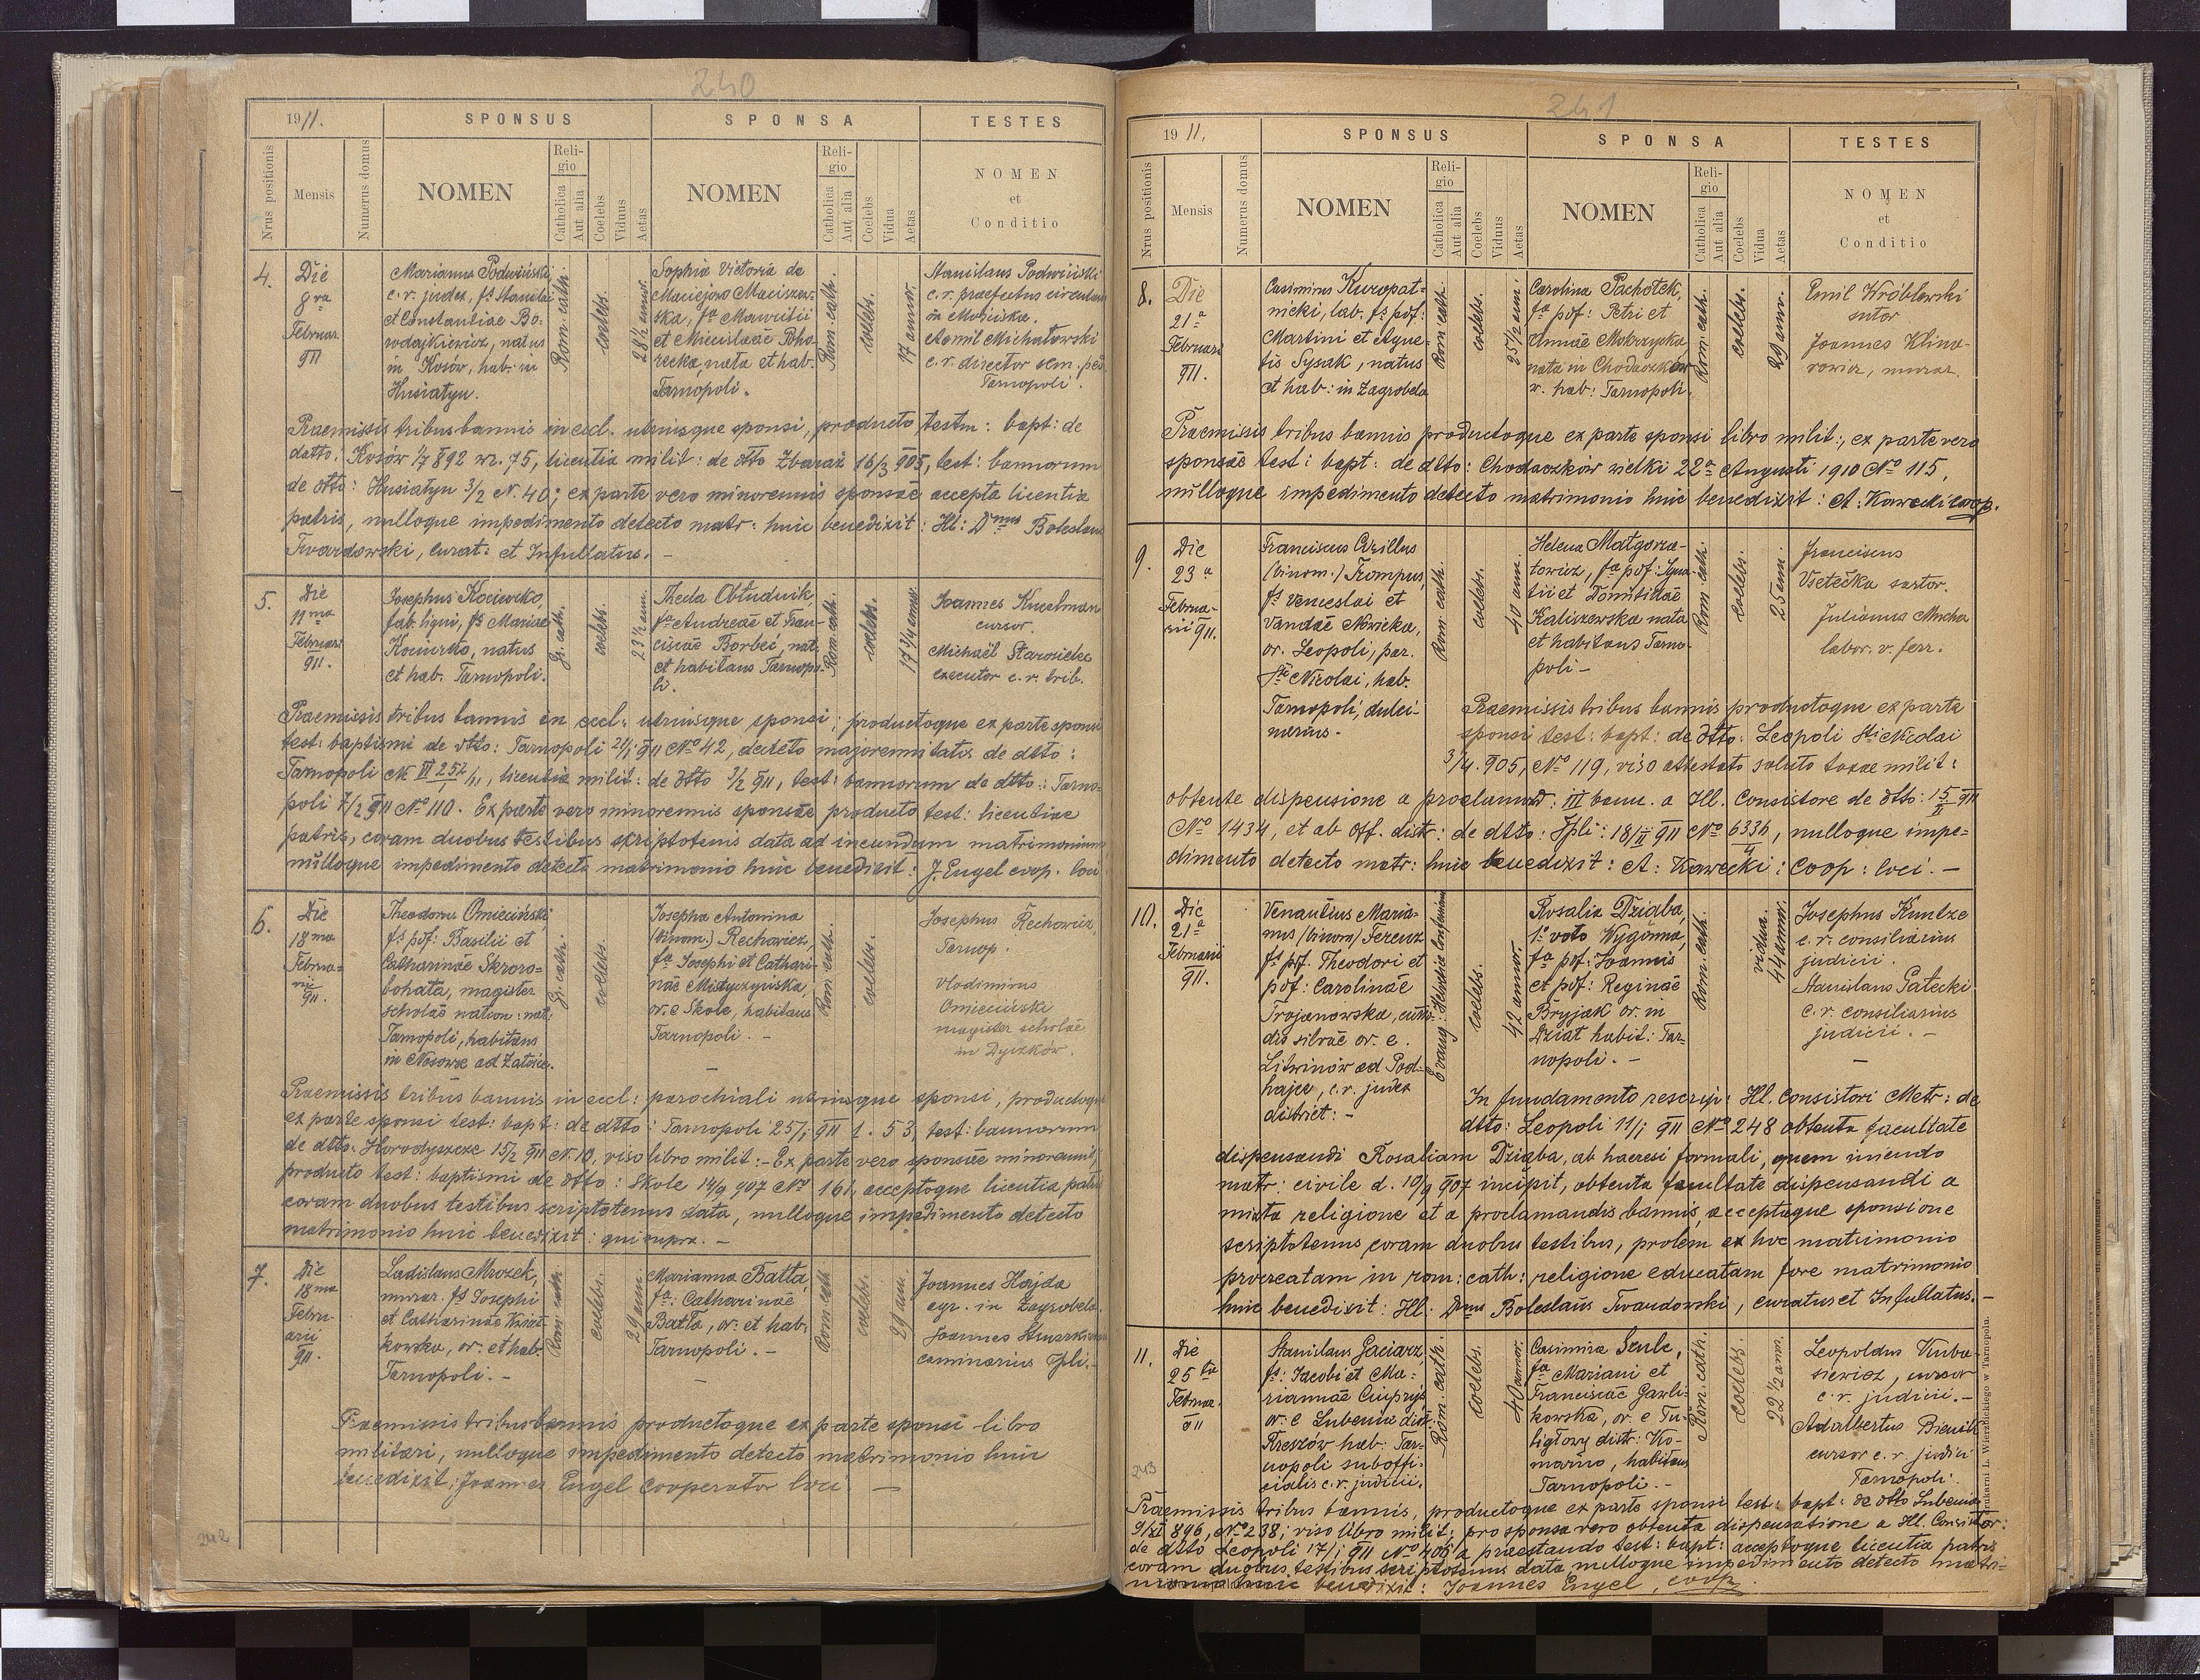 240
1911.
SPONSUS
SPONSA
TESTES
Nrus positionis
Mensis
Numerus domus
NOMEN
Religio
Catholica
Aut alia
Coelebs
Viduus
Aetas
NOMEN
Religio
Catholica
Aut alia
Coelebs
Vidua
Aetas
NOMEN
et
Conditio
4.
Die
8va
Februar.
911
Marianus Podwiński,
c. r. judex, fs Stanislai
et Constantiae Bo-
rodajkiewicz, natus
in Kosów, hab. in
Husiatyn.
Rom. cath.
coelebs.
28 1/2 annor.
Sophia Victoria de
Maciejow Maciszew-
ska, fa Mauritii
et Miecislaae Poho-
recka, nata et hab.
Tarnopoli.
Rom. cath.
coelebs.
17 annor.
Stanislaus Podwiński
c. r. praefectus
in
Michałowski
c. r. director sem. ped.
Tarnopoli.
Praemissis tribus bannis in eccl. utriusque sponsi, producto testm: bapt: de
datto: Kosów 1/7 892 nr. 75, licentia milit: de dtto Zbaraż 16/3 905, test: bannorum
de dtto: Husiatyn 3/2 N. 40; ex parte vero minorennis sponsae accepta licentia
patris, nulloque impedimento detecto matr: huic benedixit: Hl: Dmus Boleslaus
Twardowski, curat: et Infullatus. -
5.
Die
11ma
Februari
911.
Josephus Kociurko,
fab. ligni, fs Mariae
Kociurko, natus
et hab. Tarnopoli.
Gr. cath.
coelebs.
23 1/2 ann.
Thecla Obłudnik,
fa Andreae et Fran-
ciscae Borbeć, nat.
et habitans Tarnopo-
li.
Rom. cath.
coelebs.
17 3/4 annor.
Joannes
cursor.
Michaël
executor c. r. trib.
Praemissis tribus bannis in eccl: utriusque sponsi; productoque ex parte sponsi
test: baptismi de dtto: Tarnopoli 21/i 911 No 42, decreto majorennitatis de dtto:
Tarnopoli licentia milit: de dtto 3/2 911, test: bannorum de dtto: Tarno-
poli 7/2 911 No 110. Ex parte vero minorennis sponsae producto test: licentiae
patris, coram duobus testibus scriptotenus data ad ineundum matrimonium
nulloque impedimento detecto matrimonio huic benedixit: J. Engel coop. loci
6.
Die
18ma
Februa-
rii
911.
Theodorus Omieciński,
fs pdf: Basilii et
Catharinae Skoro-
bohata, magister
scholae nation: nat.
Tarnopoli, habitans
in Nosowe ad Zatoże.
Gr. cath.
coelebs.
Josepha Antonina
(binom.) Rechowicz,
fa Josephi et Cathari-
nae
or. e Skole, habitans
Tarnopoli. -
Rom. cath.
coelebs.
Josephus Rechowicz,
Tarnop.
Vlodimirus
Omieciński
magister scholae
in Dyczków.
Praemissis tribus bannis in eccl: parochiali utriusque sponsi, productoque
ex parte sponsi test: bapt: de dtto: Tarnopoli 25/i 911 1. 53, test: bannorum
de dtto: Horodyszcze 15/2 911 N. 10, viso libro milit: - Ex parte vero sponsae minorennis,
producto test: baptismi de dtto: Skole 14/9 907 No 161, acceptoque licentia patris
coram duobus testibus scriptotenus data, nulloque impedimento detecto
matrimonio huic benedixit: qui supra. -
7.
Die
18ma
Febru-
arii
911.
Ladislaus Mrozek,
murar. fs Josephi
et Catharinae Kwiat-
kowska, or. et hab.
Tarnopoli. -
Rom. cath.
coelebs.
29 ann.
Marianna Batta,
fa: Catharinae
Batta, or. et hab.
Tarnopoli. -
Rom. cath.
coelebs.
29 an.
Joannes Hajda
agr. in Zagrobela.
Joannes
caminarius Tpli. -
Praemissis tribus bannis productoque ex parte sponsi libro
militari, nulloque impedimento detecto matrimonio huic
benedixit: Joannes Engel cooperator loci. -
242
241
1911.
SPONSUS
SPONSA
TESTES
Nrus positionis
Mensis
Numerus domus
NOMEN
Religio
Catholica
Aut alia
Coelebs
Viduus
Aetas
NOMEN
Religio
Catholica
Aut alia
Coelebs
Vidua
Aetas
NOMEN
et
Conditio
8.
Die
21a
Februari
911.
Casimirus Kuropat-
nicki, lab. fs pdf:
Martini et Agne-
tis Sysak, natus
et hab: in Zagrobela
Rom. cath.
coelebs.
25 1/2 ann.
Carolina Pachotek,
fa pdf: Petri et
Annae Mokrzycka,
nata in Chodaczków
w. hab: Tarnopoli.
Rom. cath.
coelebs.
29 ann.
Emil Wróblewski
sutor
Joannes Klimo-
rowicz, murar.
Praemissis tribus bannis productoque ex parte sponsi libro milit:, ex parte vero
sponsae test: bapt: de dtto: Chodaczków wielki 22a Augusti 1910 No 115,
nulloque impedimento detecto matrimonio huic benedixit: A: Kawecki coop.
9.
Die
23a
Februa-
rii 911.
Franciscus Cyrillus
(binom.) Trompus,
fs Venceslai et
Vandae Nowicka,
or. Leopoli, par.
Sti Nicolai, hab.
Tarnopoli, dulci-
narius.
Rom. cath.
coelebs.
40 ann.
Helena Małgorza-
towicz, fa pdf: Igna-
tii et Domitillae
Kaliszewska nata
et habitans Tarno-
poli -
Rom. cath.
coelebs.
25 ann.
Franciscus
Vsetečka sartor.
Julianus Mucha
labor. v. ferr.
Praemissis tribus bannis productoque ex parte
sponsi test: bapt: de dtto: Leopoli Sti Nicolai
3/4. 905, No 119, viso attestato soluto taxae milit:
obtente dispensione a proclamand: III bann. a Hl. Consistore de dtto: 15/II 911
No 1434, et ab Off. distr: de dtto: Tpli: 18/II 911 No 6336, nulloque impe-
dimento detecto matr: huic benedixit: A: Kawecki: Coop: loci. -
10.
Die
21a
Februarii
911.
Venantius Maria-
nus (binom) Ferenz
fs pdf. Theodori et
pdf: Carolinae
Trojanowska, custo-
dis silvae or. e.
Litwinów ad Pod-
hajce, c. r. judex
district: -
coelebs.
42 annor.
Rosalia Dziąba,
1o voto Wygonna,
fa pdf: Joannis
et pdf: Reginae
Bryjak or. in
Dział habit: Tar-
nopoli. -
Rom. cath.
vidua.
44 annor.
Josephus Kuntze
c. r. consiliarius
judicii.
Stanislaus Patecki
c. r. consiliarius
judicii. -
In fundamento rescrip: Hl. Consistori Metr: de
dtto: Leopoli 11/i 911 No 248 obtenta facultate
dispensandi Rosaliam Dziąba, ab haeresi formali, quem ineundo
matr: civile d. 10/9 907 incipit, obtenta facultate dispensandi a
mixta religione et a proclamandis bannis, acceptaque sponsione
scriptotenus coram duobus testibus, prolem ex hoc matrimonio
procreatam in rom: cath: religione educatam fore matrimonio
huic benedixit: Hl. Dmus Boleslaus Twardowski, curatus et Infullatus. -
11.
Die
25ta
Februa.
911
Stanislaus Gaciarz,
fs: Jacobi et Ma-
riannae Ciupryś
or. e Lubenia distr.
Rzeszów hab: Tar-
nopoli suboffi-
cialis c. r. judicii.
Rom. cath.
coelebs.
40 annor.
Casimira Szulc,
fa Mariani et
Franciscae Gawli-
kowska, or. e Tu-
ligłowy distr: Ko-
marno, habitans
Tarnopoli. -
Rom. cath.
coelebs.
22 1/2 annor.
Leopoldus Kuba-
siewicz, cursor
c. r. judicii. -
Adalbertus
cursor c. r. judici
Tarnopoli.
243
Praemissis tribus bannis, productoque ex parte sponsi test: bapt: de dtto Lubenia
9/XI 896, No 238; viso libro milit; pro sponsa vero obtenta dispensatione a Hl. Consistor:
de dtto Leopoli 17/i 911 No 405 a praestando test: bapt: acceptoque licentia patris
coram duobus testibus scriptotenus data, nulloque impedimento detecto matri-
monio huic benedixit: Joannes Engel, coop.
Drukarni L. Wierzbickiego w Tarnopolu.